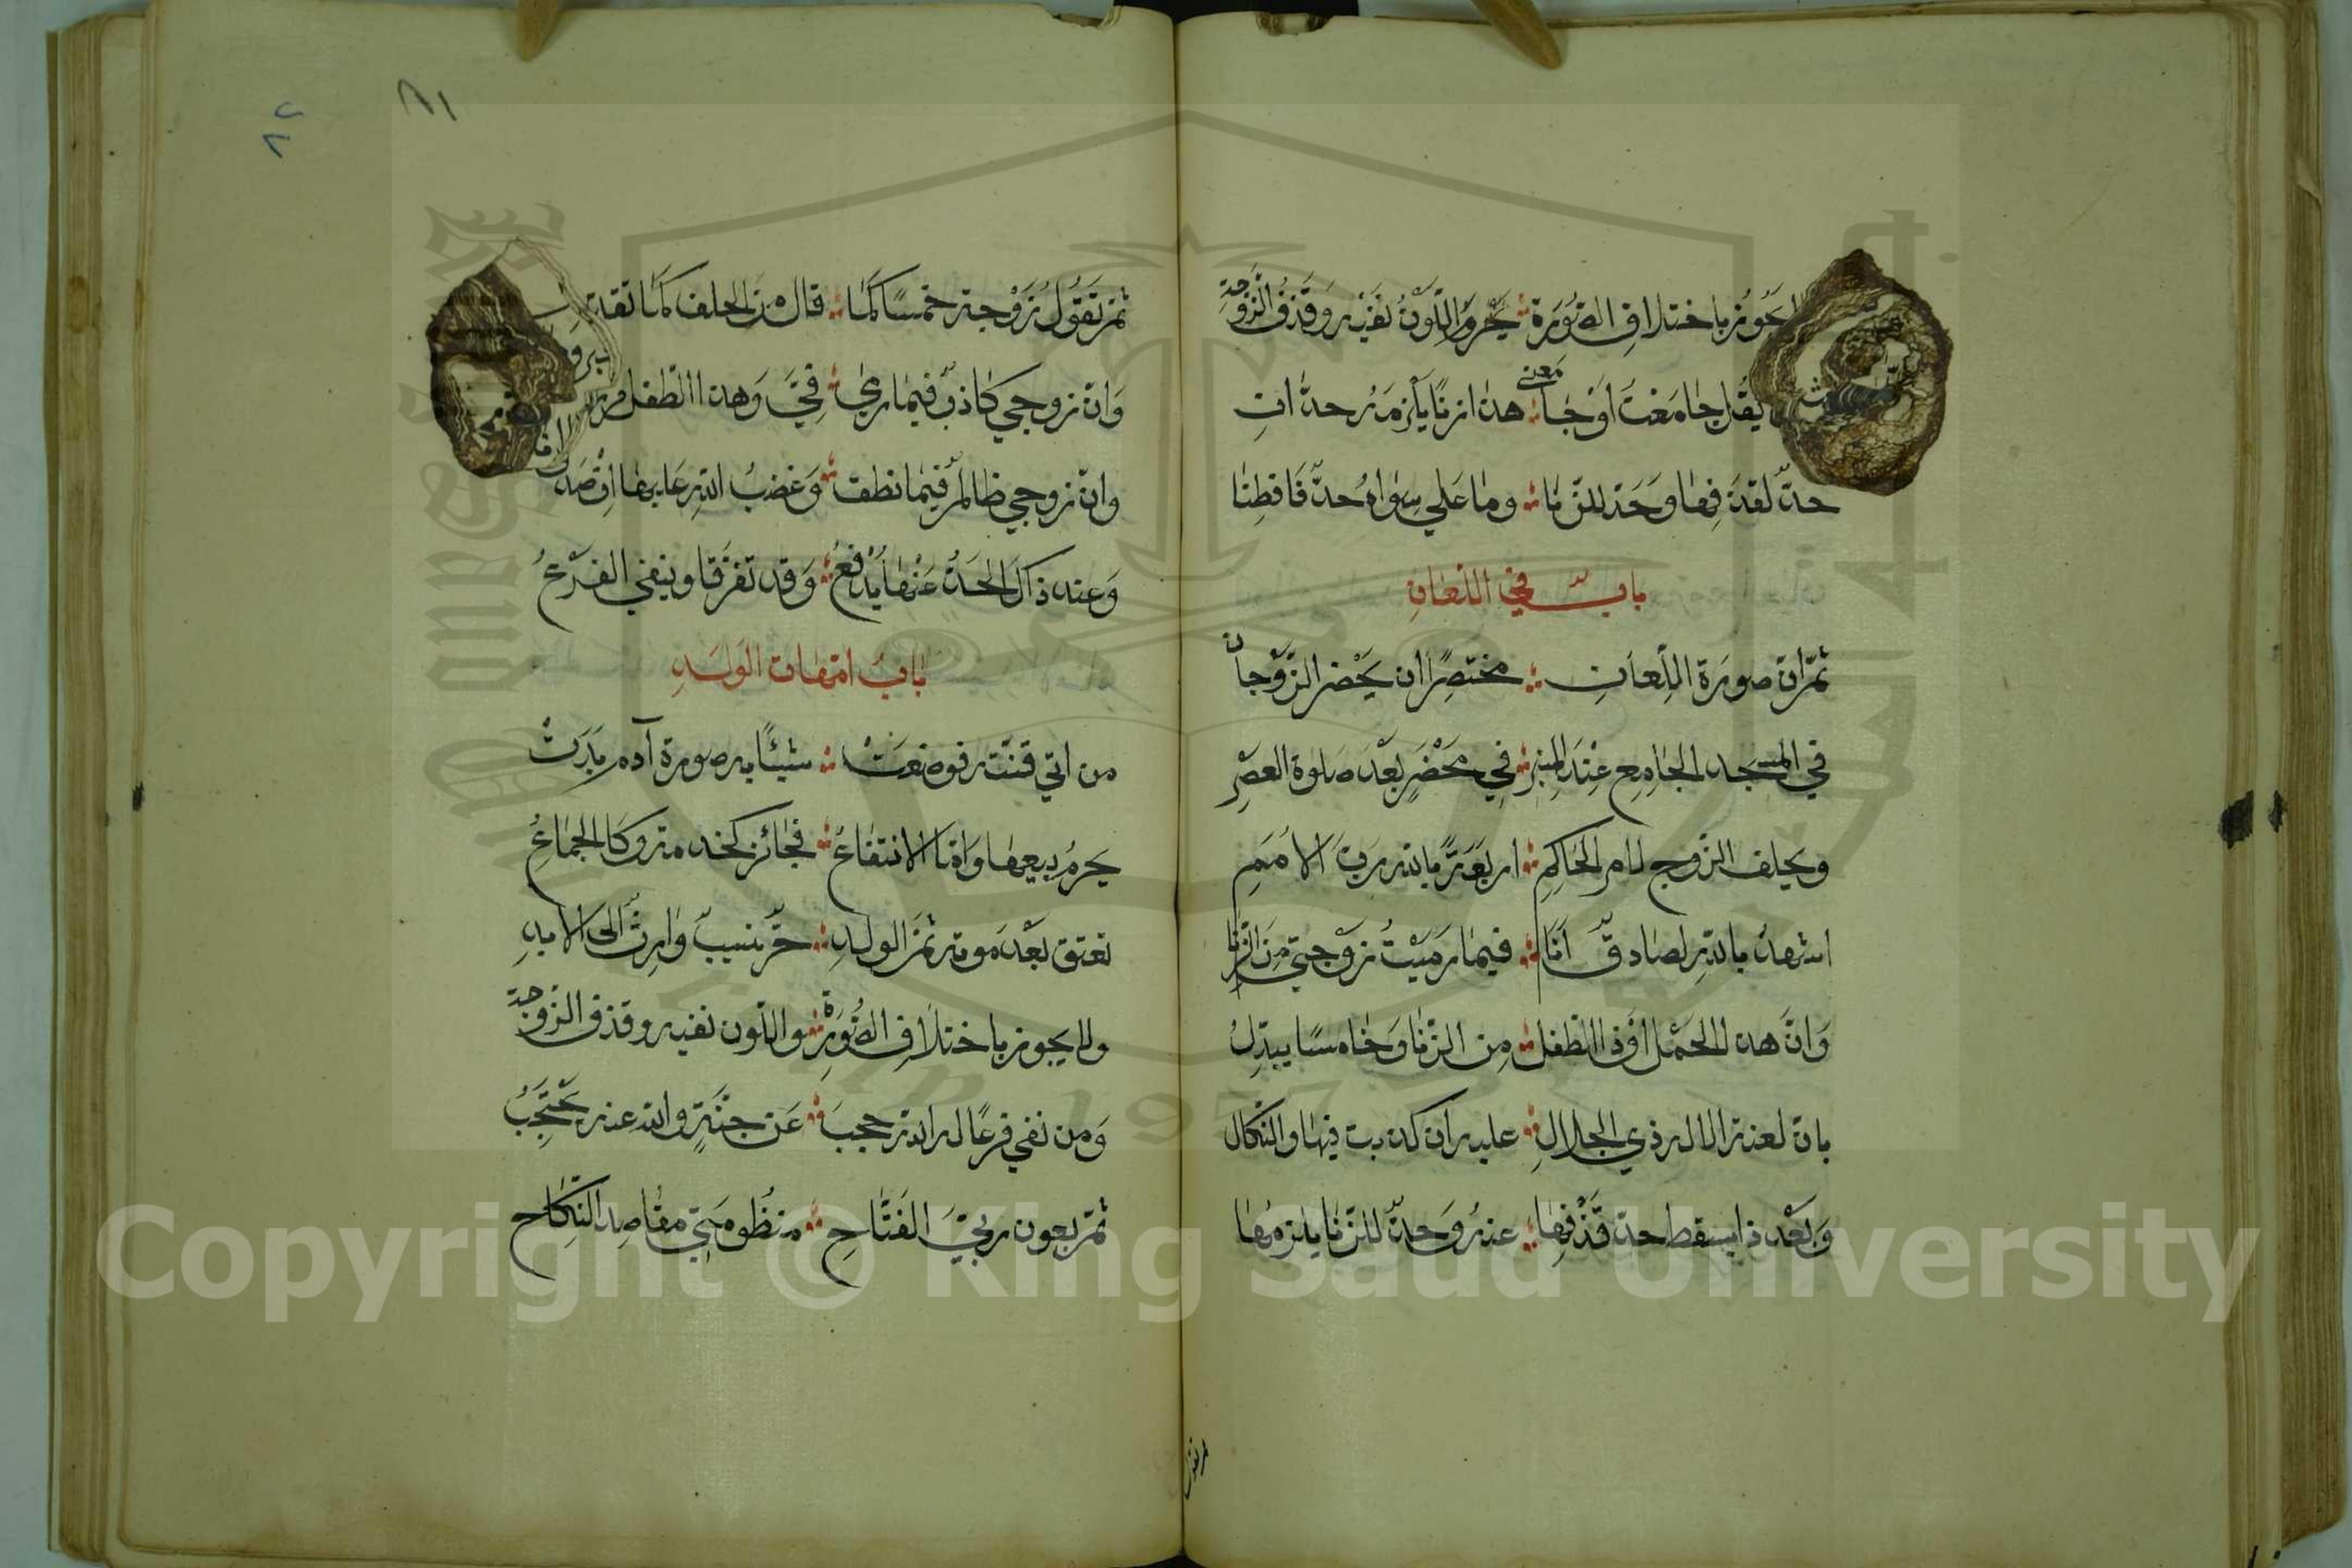 يجوز باختلاف الصُّورَة يَحْرُمُ اللَّوْنُ نَفْيُه وَقَذْفُ الزَّوجَةِ
يقل جامعْتَ اَوْ خَبَا معنى هذا زنًا يَلْزَمَهُ حدّان
حدّ لقذفِها وَحَدّ للزّنا وما عَلي سِوَاهُ حدّ فَافطِنَا
باب في اللّعَانِ
ثمّ ان صورَة اللِّعَانِ مختصِرًا ان يَحْضر الزَّوْجانِ
في المسْجد الجامِعِ عِنْدَ المِنبر في مَحْضَرٍ بَعْدَ صَلوٰة العصْرِ
ويحلف الزّوج لامر الحَاكِمِ اربَعَةً بالله رَبّ الاُمَمِ
اشهدُ بالله لصَادقٌ اَنَا فيمَا رَمَيْتُ زَوْجَتي مِنَ الزِّنا
وَانَّ هذا الحَمْل اَوْ ذا الطّفل مِن الزّنا وَخَامسًا يبدّلُ
بان لعنة الاله ذي الجلالِ عليه ان كذبت فيها والنّكال
وَبَعْد ذا يسقط حدّ قَذْفِها عنهُ وَحدّ للزّنا يلزمُهَا
ثم تَقُولُ زَوْجة خمسًا كَمَا قال من الحلف كَمَا تقد
وَانّ زوجي كاذبٌ فيما رمى فِيَّ وَهذا الطّفل
وانّ زوجي ظالمٌ فيمَا نطق وَغضبُ اللهِ عَليها اِنْ صَدَق
وَعند ذاكَ الحَدُّ عَنْها يُدْفعُ وَقد تفرَّقا وينفي الفَرْعُ
بَابُ امّهات الوَلَدِ
من اتي قنّته فوضعَتْ شيئًا به صورة آدم بَدَتْ
يَحرمُ بيعها وَامّا الانتفاعُ فجائز كخدمة وكالجماعُ
تعتق بَعْدَ موته ثمّ الولدِ حرّ نسيبٌ وَارِثٌ الى الابدِ
ولا يجوز باختلاف الصُّورَةِ واللّون نفيه وقذف الزّوجة
وَمن نفي فرعًا له الله حجبَ عَن جنّةٍ والله عنه يَحْتَجِبُ
ثمّ بعون ربّيَ الفَتَّاحِ منظُومَتي مقَاصِد النِّكَاح
٨١
٨٢
Copyright © King Saud University